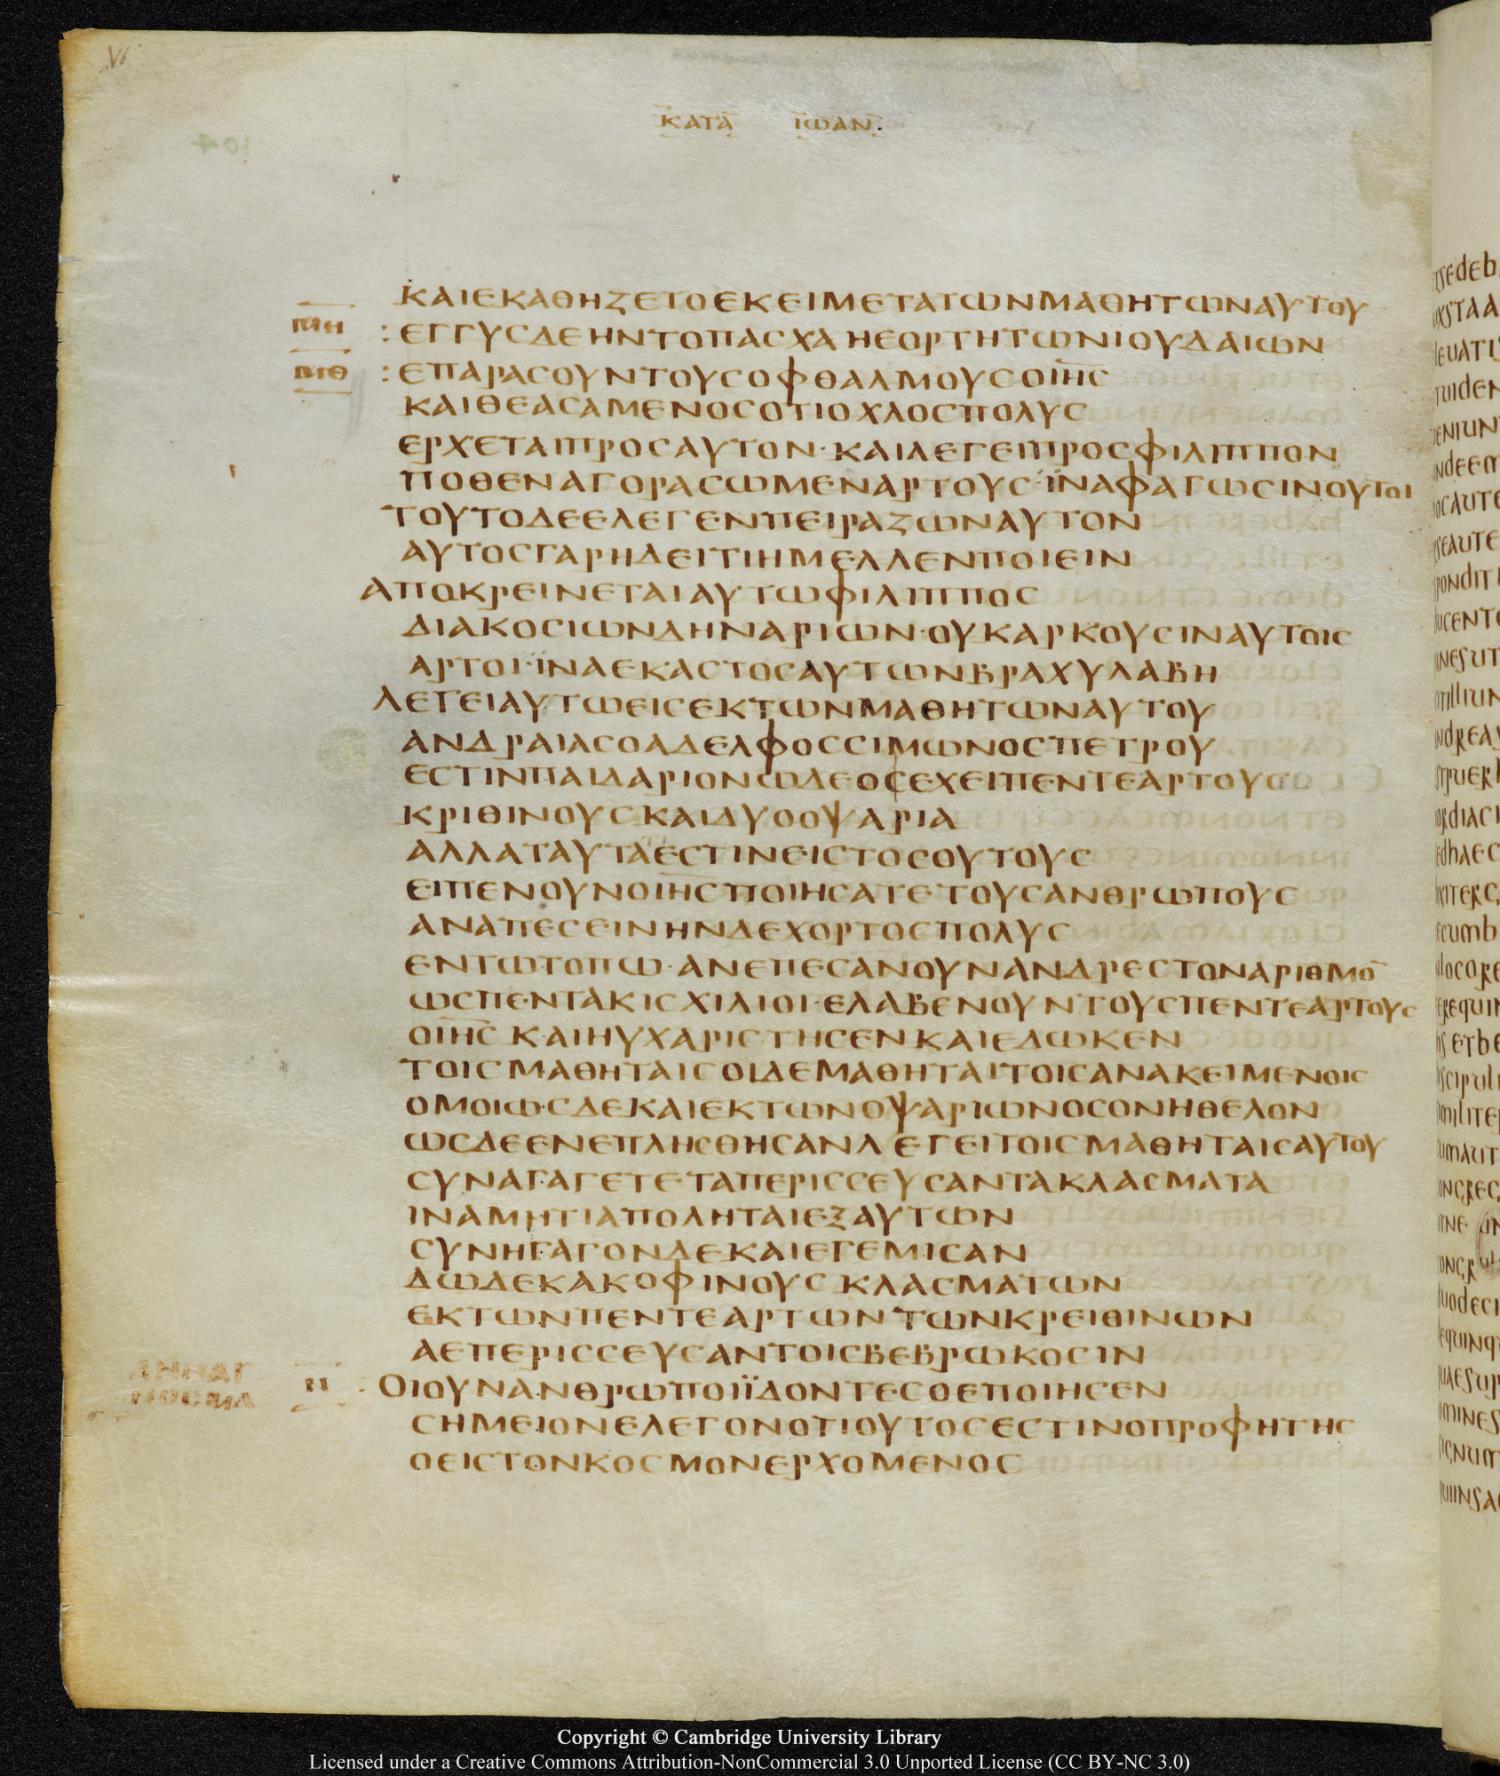 VI
ΚΑΤΑ ΙΩΑΝ.
ΚΑΙΕΚΑΘΗΖΕΤΟΕΚΕΙΜΕΤΑΤΩΝΜΑΘΗΤΩΝΑΥΤΟΥ
ΜΗ : ΕΓΓΥСΔΕΗΝΤΟΠΑСΧΑ ΗΕΟΡΤΗΤΩΝΙΟΥΔΑΙΩΝ
ΜΘ : ΕΠΑΡΑСΟΥΝΤΟΥСΟΦΘΑΛΜΟΥСΟΙΗС
ΚΑΙΘΕΑСΑΜΕΝΟСΟΤΙΟΧΛΟСΠΟΛΥС
ΕΡΧΕΤΑΙΠΡΟСΑΥΤΟΝ·ΚΑΙΛΕΓΕΙΠΡΟСΦΙΛΙΠΠΟΝ
ΠΟΘΕΝΑΓΟΡΑСΩΜΕΝΑΡΤΟΥС·ΪΝΑΦΑΓΩСΙΝΟΥΤΟΙ
ΤΟΥΤΟΔΕΕΛΕΓΕΝΠΕΙΡΑΖΩΝΑΥΤΟΝ
ΑΥΤΟСΓΑΡΗΔΕΙΤΙΗΜΕΛΛΕΝΠΟΙΕΙΝ
ΑΠΟΚΡΕΙΝΕΤΑΙΑΥΤΩΦΙΛΙΠΠΟС
ΔΙΑΚΟСΙΩΝΔΗΝΑΡΙΩΝ·ΟΥΚΑΡΚΟΥСΙΝΑΥΤΟΙС
ΑΡΤΟΙ·ΪΝΑΕΚΑСΤΟСΑΥΤΩΝΒΡΑΧΥΛΑΒΗ
ΛΕΓΕΙΑΥΤΩΕΙСΕΚΤΩΝΜΑΘΗΤΩΝΑΥΤΟΥ
ΑΝΔΡΑΙΑСΟΑΔΕΛΦΟССΙΜΩΝΟСΠΕΤΡΟΥ
ΕСΤΙΝΠΑΙΔΑΡΙΟΝΩΔΕΟСΕΧΕΙΠΕΝΤΕΑΡΤΟΥС
ΚΡΙΘΙΝΟΥСΚΑΙΔΥΟΟΨΑΡΙΑ
ΑΛΛΑΤΑΥΤΑΕСΤΙΝΕΙСΤΟСΟΥΤΟΥС
ΕΙΠΕΝΟΥΝΟΙΗСΠΟΙΗСΑΤΕΤΟΥСΑΝΘΡΩΠΟΥС
ΑΝΑΠΕСΕΙΝΗΝΔΕΧΟΡΤΟСΠΟΛΥС
ΕΝΤΩΤΟΠΩ·ΑΝΕΠΕСΑΝΟΥΝΑΝΔΡΕСΤΟΝΑΡΙΘΜΟ̅
ΩСΠΕΝΤΑΚΙСΧΙΛΙΟΙ·ΕΛΑΒΕΝΟΥΝΤΟΥСΠΕΝΤΕΑΡΤΟΥС
ΟΙΗС ΚΑΙΗΥΧΑΡΙСΤΗСΕΝΚΑΙΕΔΩΚΕΝ
ΤΟΙСΜΑΘΗΤΑΙСΟΙΔΕΜΑΘΗΤΑΙΤΟΙСΑΝΑΚΕΙΜΕΝΟΙС
ΟΜΟΙΩСΔΕΚΑΙΕΚΤΩΝΟΨΑΡΙΩΝΟСΟΝΗΘΕΛΟΝ
ΩСΔΕΕΝΕΠΛΗСΘΗСΑΝΛΕΓΕΙΤΟΙСΜΑΘΗΤΑΙСΑΥΤΟΥ
СΥΝΑΓΑΓΕΤΕΤΑΠΕΡΙССΕΥСΑΝΤΑΚΛΑСΜΑΤΑ
ΙΝΑΜΗΤΙΑΠΟΛΗΤΑΙΕΞΑΥΤΩΝ
СΥΝΗΓΑΓΟΝΔΕΚΑΙΕΓΕΜΙСΑΝ
ΔΩΔΕΚΑΚΟΦΙΝΟΥС ΚΛΑСΜΑΤΩΝ
ΕΚΤΩΝΠΕΝΤΕΑΡΤΩΝΤΩΝΚΡΕΙΘΙΝΩΝ
ΑΕΠΕΡΙССΕΥСΑΝΤΟΙСΒΕΒΡΩΚΟСΙΝ
Ν : ΟΙΟΥΝΑΝΘΡΩΠΟΙΪΔΟΝΤΕСΟΕΠΟΙΗСΕΝ
СΗΜΕΙΟΝΕΛΕΓΟΝΟΤΙΟΥΤΟСΕСΤΙΝΟΠΡΟΦΗΤΗС
ΟΕΙСΤΟΝΚΟСΜΟΝΕΡΧΟΜΕΝΟС
Copyright © Cambridge University Library
Licensed under a Creative Commons Attribution-NonCommercial 3.0 Unported License (CC BY-NC 3.0)